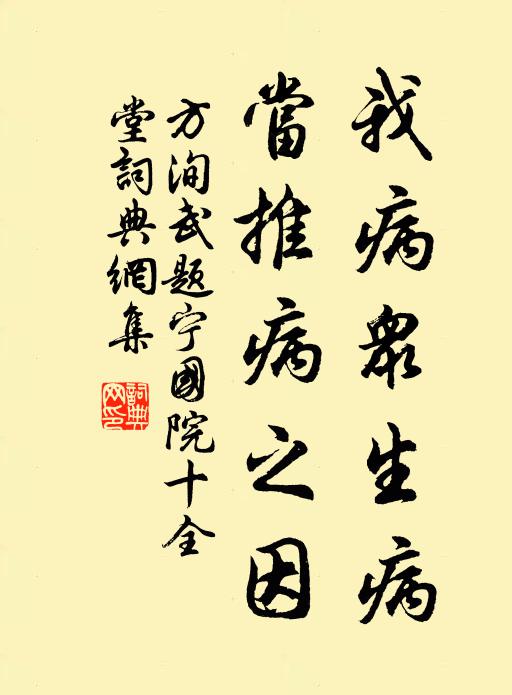 我病眾生病
當推病之因
方洵武題宁國院十全
堂詞典網集
詞典
网印